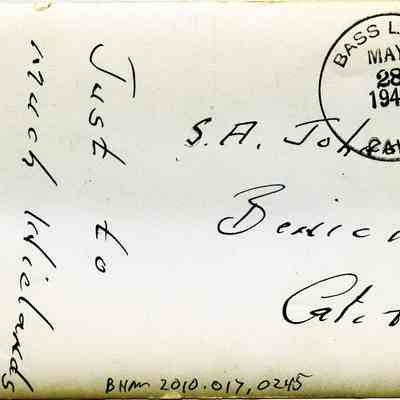 Just to
much Wielands
BASS L
MAY
28
194
CA
S. A. Joh
Benic
Calif
BHM 2010.017.0245